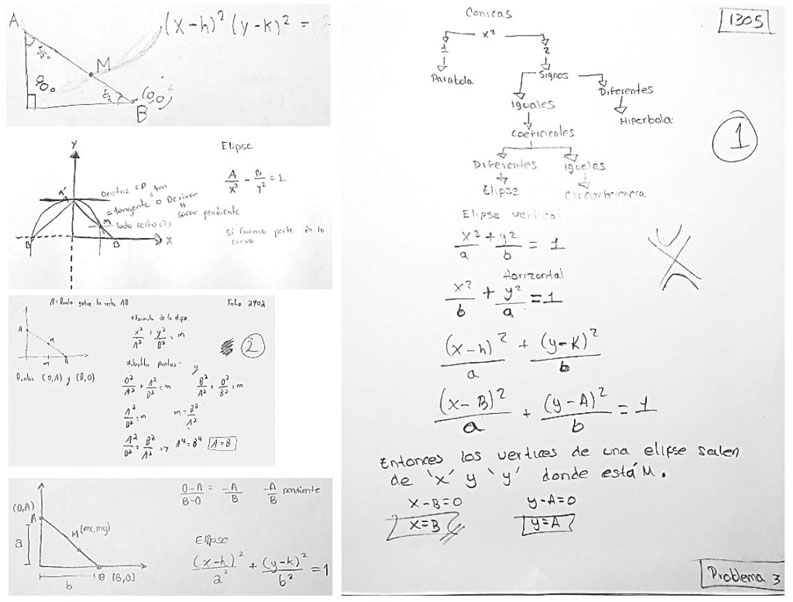 A
(x-h)² (y-k)² =
M
90°
(0,0)
B
Y
Elipse
A/x² - B/y² = 1
Directriz = D
= tangente o Derivar
sacar pendiente
lado recto
si forma parte de la
curva
B
B
X
M: Punto sobre la recta AB
Folio 2902
A
M
m
B
Puntos (0,A) y (B,0)
2
x²/A² + y²/B² = m
y
0²/A² + A²/B² = m
B²/A² + 0²/B² = m
A²/B² = m
m = B²/A²
A²/B² = B²/A² => A⁴ = B⁴ A=B
(0,A)
A
a
M(mx,my)
B (B,0)
b
0-A/B-0 = -A/B
-A/B pendiente
Elipse
(x-h)²/a² + (y-k)²/b² = 1
1305
Conicas
x²
1
2
Parabola
Signos
Iguales
Diferentes
Hiperbola
Coeficientes
Diferentes
Iguales
Elipse
Circunferencia
1
Elipse vertical
x²/a + y²/b = 1
Horizontal
x²/b + y²/a = 1
(x-h)²/a + (y-k)²/b
(x-B)²/a + (y-A)²/b = 1
Entonces los vertices de una elipse salen
de 'x' y 'y' donde está M.
x-B=0
y-A=0
x=B
y=A
Problema 3